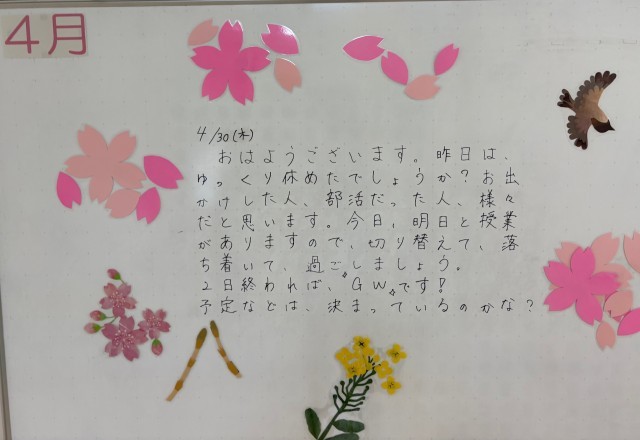 4月
4/30(木)
おはようございます。昨日は、
ゆっくり休めたでしょうか？お出
かけした人、部活だった人、様々
だと思います。今日、明日と授業
がありますので、切り替えて、落
ち着いて、過ごしましょう。
2日終われば、GWです！
予定などは、決まっているのかな？